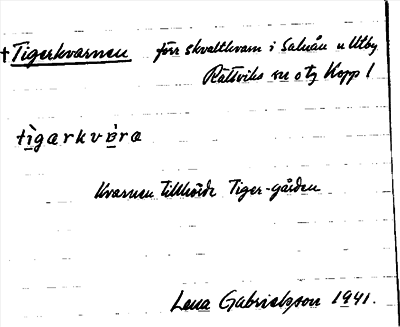 †Tigerkvarnen förr skvaltkvarn i Saluån n Utby
Rättviks sn o tg Kopp l
tìgarkvɒ̀ra
Kvarnen tillhörde Tiger-gården
Lena Gabrielsson 1941.